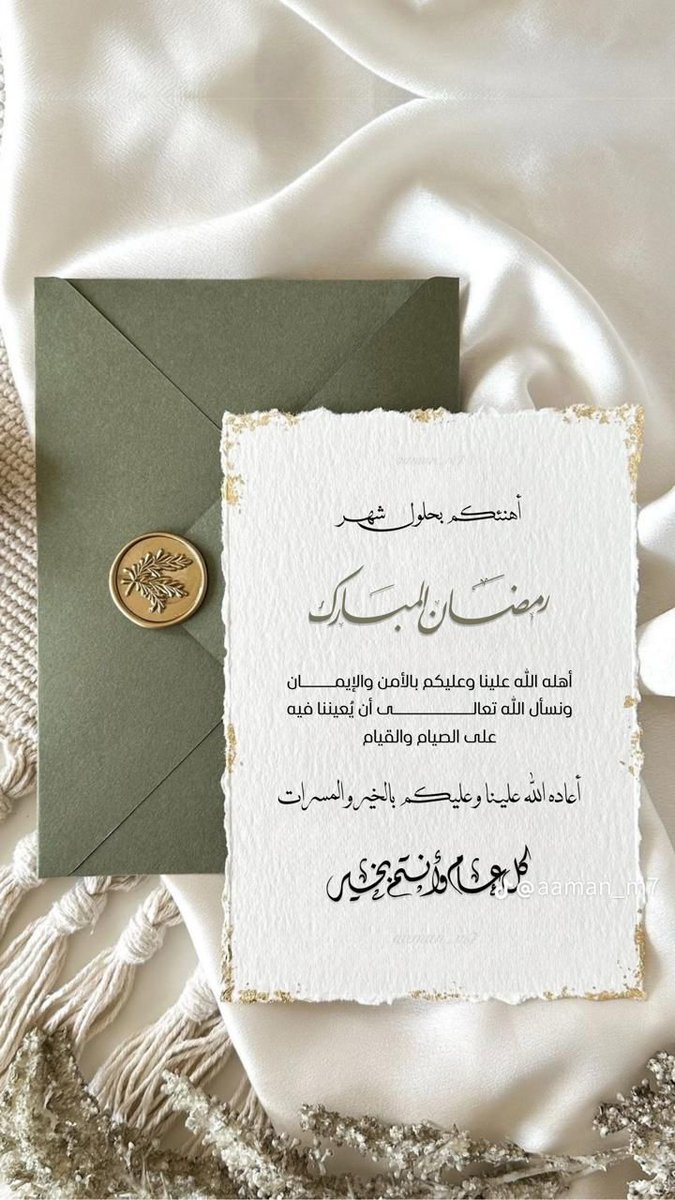 aaman_m7
أهنئكم بحلول شهر
رمضان المبارك
أهله الله علينا وعليكم بالأمن والإيمـــــان
ونسأل الله تعالـــــــــــــى أن يُعيننا فيه
على الصيام والقيام
أعاده الله علينا وعليكم بالخير والمسرات
كل عام وأنتم بخير
@aaman_m7
aaman_m7